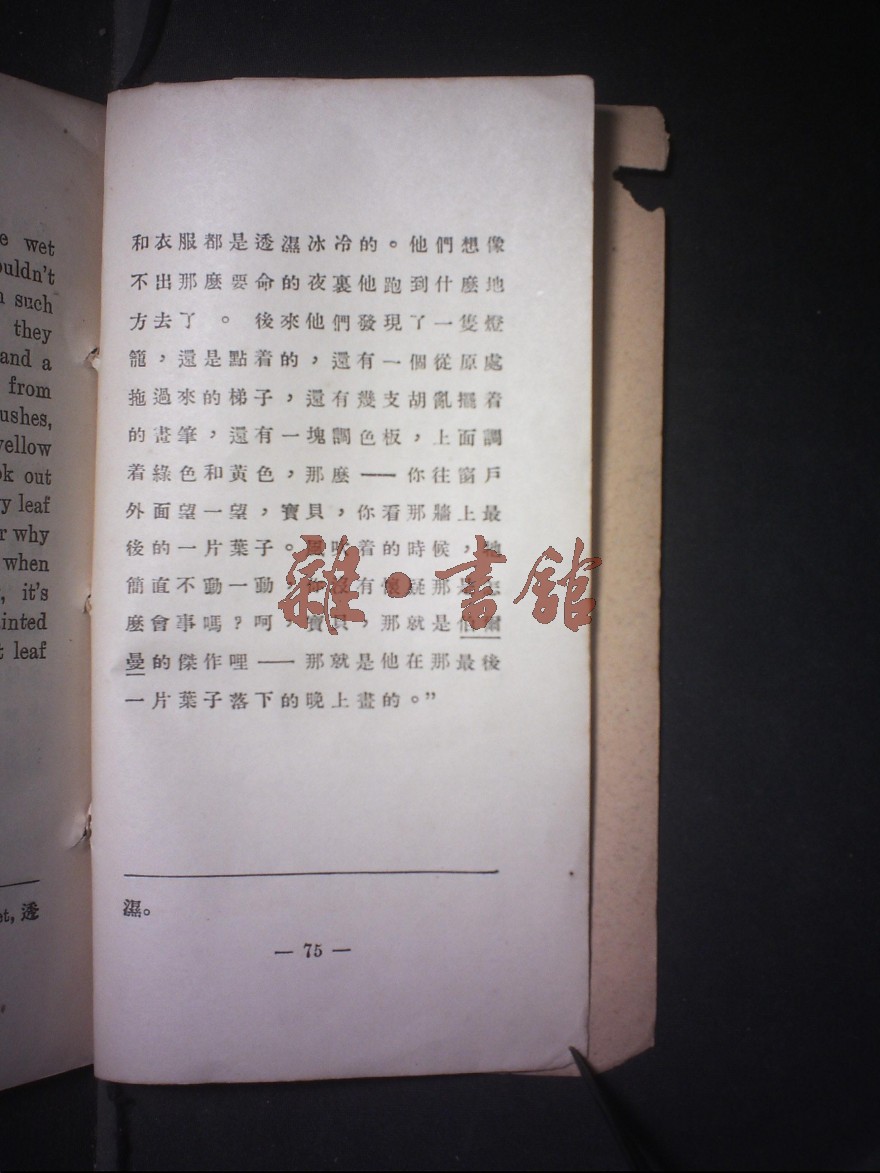 e wet
ouldn't
n such
they
and a
from
ushes,
yellow
ok out
y leaf
r why
when
, it's
inted
t leaf
et, 透
和衣服都是透濕冰冷的。他們想像
不出那麼要命的夜裏他跑到什麼地
方去了。後來他們發現了一隻燈
籠，還是點着的，還有一個從原處
拖過來的梯子，還有幾支胡亂擺着
的畫筆，還有一塊調色板，上面調
着綠色和黃色，那麼——你往窗戶
外面望一望，寶貝，你看那牆上最
後的一片葉子。風吹着的時候，
簡直不動一動，你沒有懷疑那是怎
麼會事嗎？呵，寶貝，那就是伯爾
曼的傑作哩——那就是他在那最後
一片葉子落下的晚上畫的。”
濕。
— 75 —
雜·書館